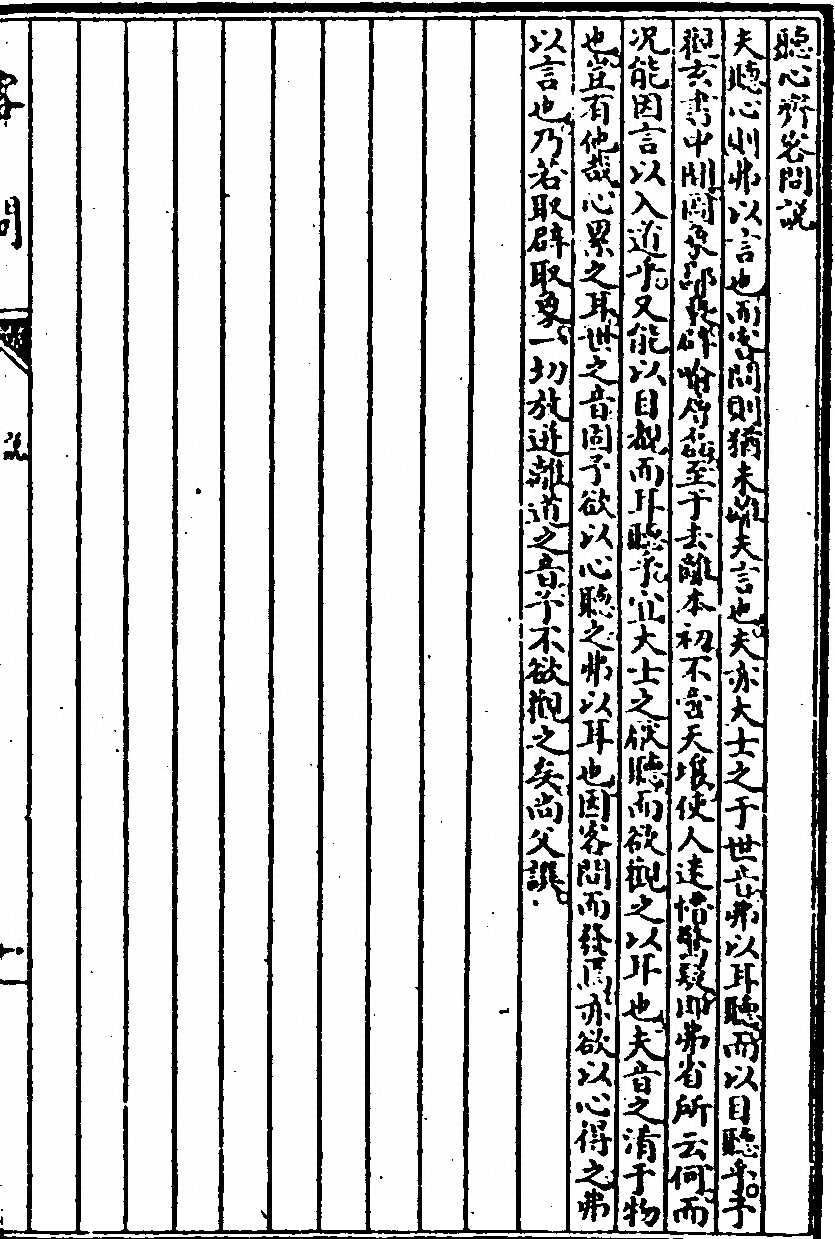 聽心齊客問説
夫聽心則弗以言也而客問則猶未離夫言也夫亦大士之于世音弗以耳聽而以目聽乎予
觀玄書中門圖象譬喻至于去離本初不啻天堆使人迷惛驚疑即弗省所云何而
况能因言以入道乎又能以目觀而耳聽乎宜大士之厭聽而欲觀之以耳也夫音之淆于物
也豈有他哉心累之耳世之音固予欲以心聽之弗以耳也因客問而發焉亦欲以心得之弗
以言也乃若取辟取象一切放迸離道之音予不欲觀之矣尚父譔
客問
説
十一